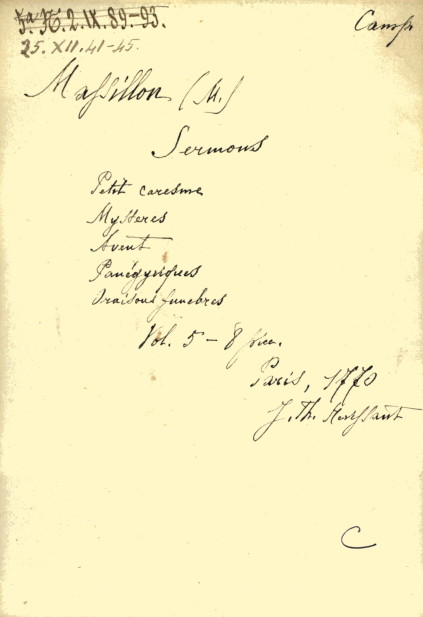 Fa. H. 2. IX. 89-93.
25. XII. 41-45.
Camp
Massillon (M.)
Sermons
Petit caresme
Mysteres
Avent
Panégyriques
Oraisons funebres
Vol. 5 - 8 picc.
Paris, 1770
J. Th. Herissant
C